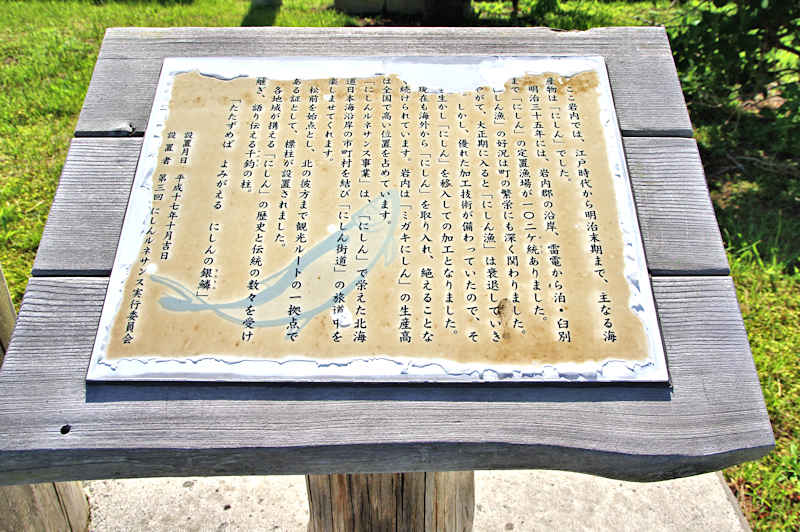 ここ岩内では、江戸時代から明治末期まで、主なる海
産物は「にしん」でした。
明治三十五年には、岩内郡の沿岸、雷電から泊・臼別
まで「にしん」の定置漁場が一〇二ケ統ありました。
「にしん漁」の好況は町の繁栄にも深く関わりました。
やがて、大正期に入ると「にしん漁」は衰退していき
しかし、優れた加工技術が備わっていたので、そ
を生かし「にしん」を移入しての加工となりました。
現在も海外から「にしん」を取り入れ、絶えることな
続けられています。岩内は「ミガキにしん」の生産高
は全国で高い位置を占めています。
「にしんルネサンス事業」は、「にしん」で栄えた北海
道日本海沿岸の市町村を結び「にしん街道」の旅道中を
楽しませてくれます。
松前を始点とし、北の彼方まで観光ルートの一拠点で
ある証として、標柱が設置されました。
各地域が携える「にしん」の歴史と伝統の数々を受け
継ぎ、語り伝える千鈞の柱。
「たたずめば よみがえる にしんの銀鱗」
設置月日 平成十七年十月吉日
設置者 第三回 にしんルネサンス実行委員会